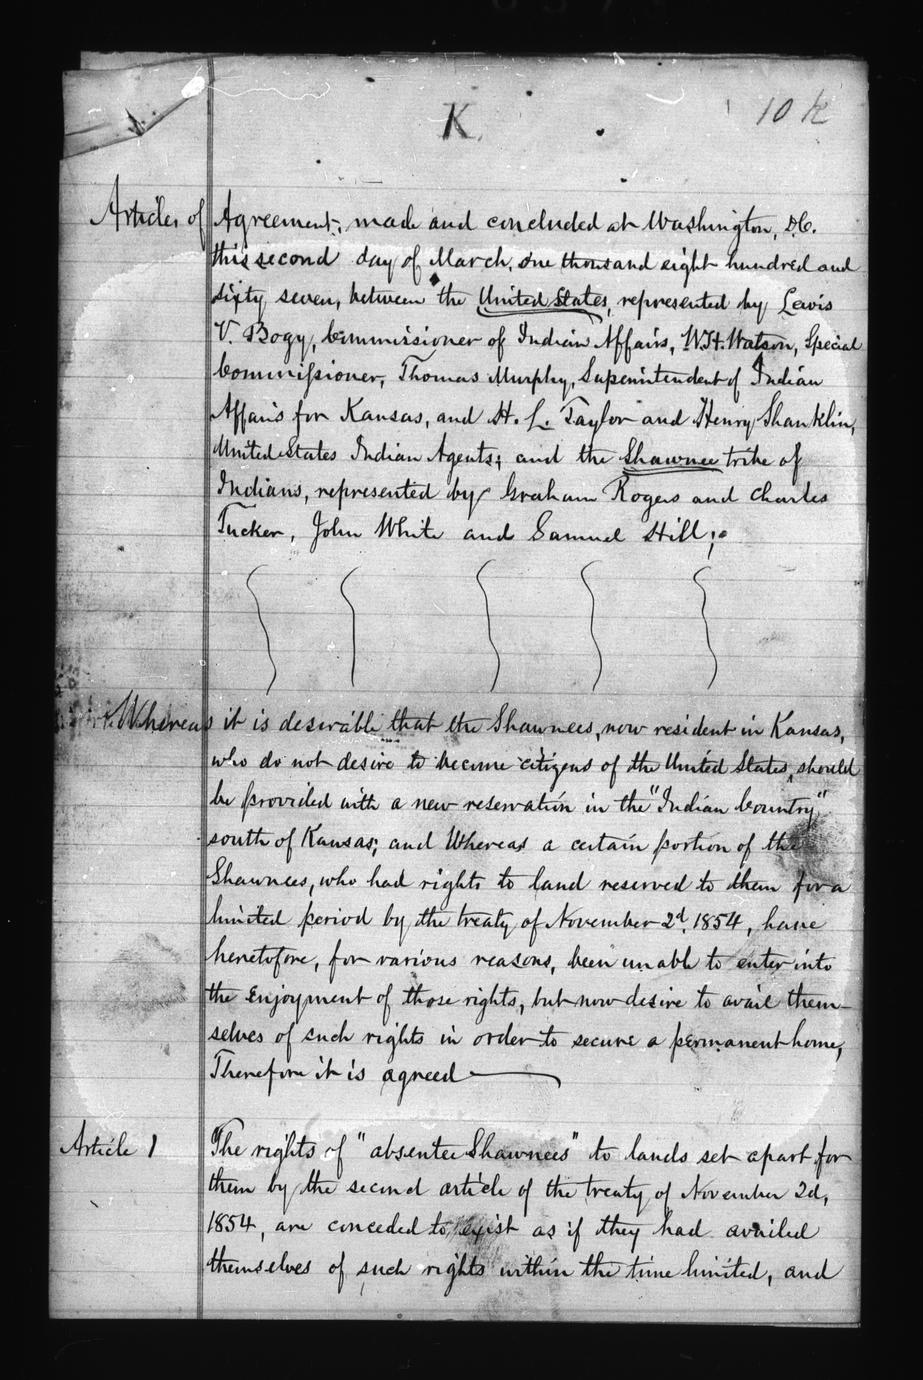 K.
10 K
Articles of Agreement, made and concluded at Washington, D.C.
this second day of March, one thousand eight hundred and
sixty seven, between the United States, represented by Lewis
V. Bogy, Commissioner of Indian Affairs, W.H. Watson, Special
Commissioner, Thomas Murphy, Superintendent of Indian
Affairs for Kansas, and H. L. Taylor and Henry Shanklin,
United States Indian Agents; and the Shawnee tribe of
Indians, represented by Graham Rogers and Charles
Tucker, John White and Samuel Hill;
Whereas it is desirable that the Shawnees, now resident in Kansas,
who do not desire to become citizens of the United States, should
be provided with a new reservation in the "Indian Country"
south of Kansas; and Whereas a certain portion of the
Shawnees, who had rights to land reserved to them for a
limited period by the treaty of November 2d, 1854, have
heretofore, for various reasons, been unable to enter into
the enjoyment of those rights, but now desire to avail them-
selves of such rights in order to secure a permanent home,
Therefore it is agreed
Article 1 The rights of "absentee Shawnees" to lands set apart for
them by the second article of the treaty of November 2d,
1854, are conceded to exist as if they had availed
themselves of such rights within the time limited, and